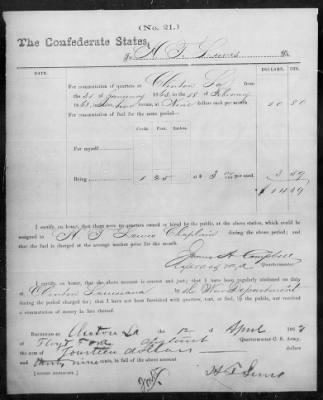 (No. 21.)
The Confederate States,
To H. T. Lewis Dr.
DATE. DOLLARS. CTS.
For commutation of quarters at Clinton La from
the 21 of January 1863, to the 18 of February
1863, months, rooms, at Nine dollars each per month 10 80
For commutation of fuel for the same period—
Cords. Feet. Inches.
For myself
Being 1 25 3 per cord 3 59
$14 39
I certify, on honor, that there were no quarters owned or hired by the public, at the above station, which could be
assigned to H. T. Lewis Chaplain during the above period; and
that the fuel is charged at the average market price for the month.
James H. Campbell
Quartermaster.
I certify, on honor, that the above account is correct and just; that I have been regularly stationed on duty
at Clinton Louisiana by the War Department
during the period charged for; that I have not been furnished with quarters, rent, or fuel, by the public, nor received
a commutation of money in lieu thereof.
RECEIVED at Clinton La the 12 of April 1863
of Quartermaster C. S. Army,
the sum of fourteen dollars
and thirty nine cents, in full of the above account.
[SIGNED DUPLICATE.] H. T. Lewis